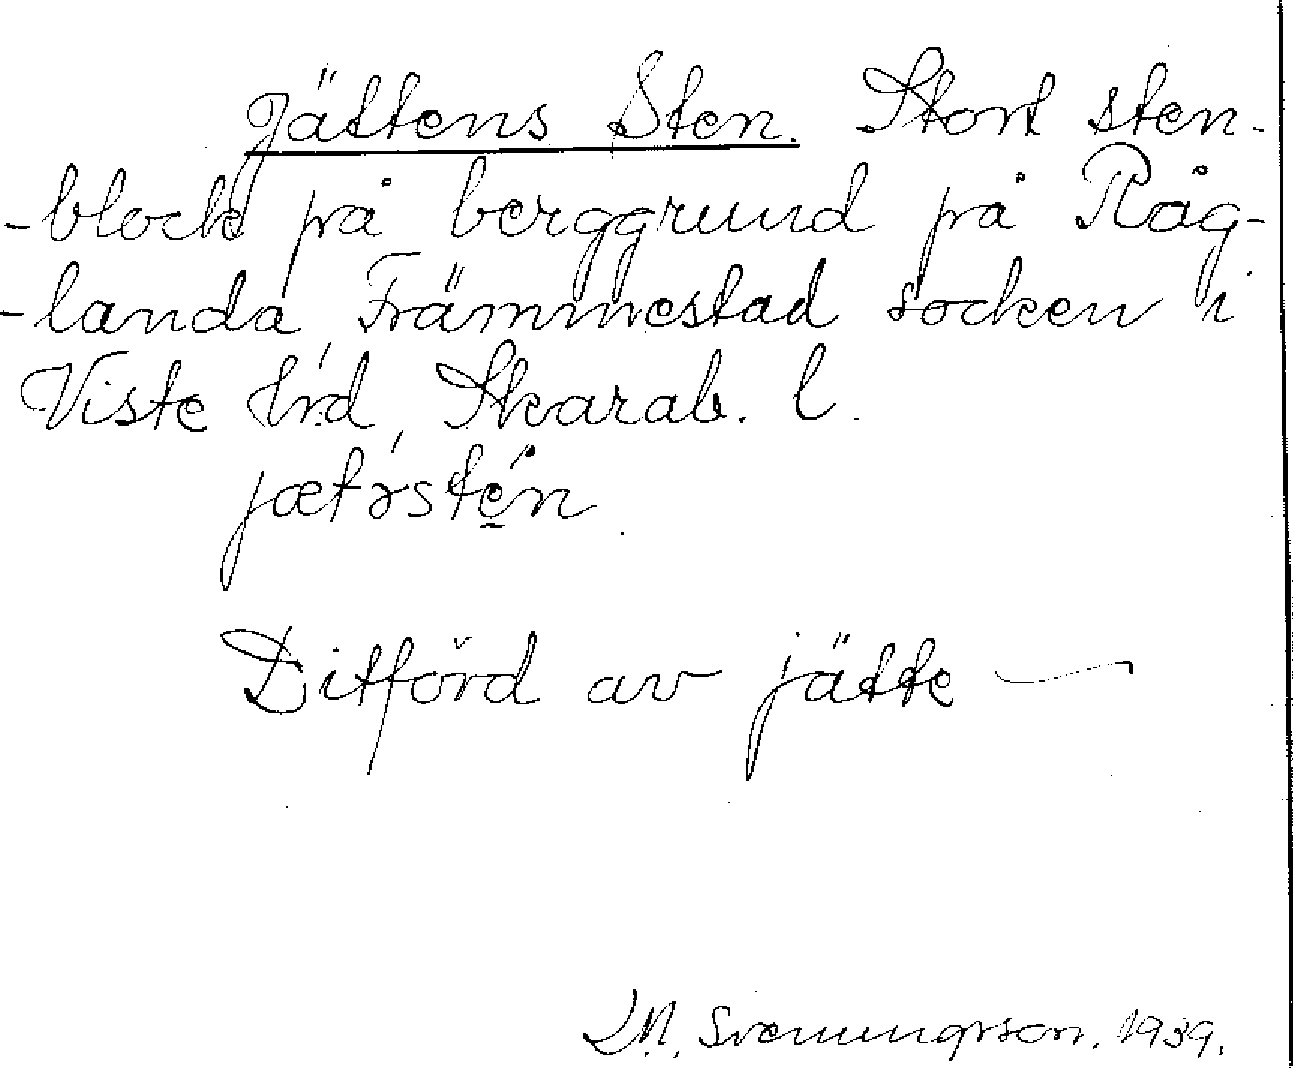 Jättens Sten. Stort sten-
-block på berggrund på Råg-
-landa, Främmestad socken i
Viste hrd, Skarab. l.
jætǝstén
Ditförd av jätte —
Svenungsson. 1939.